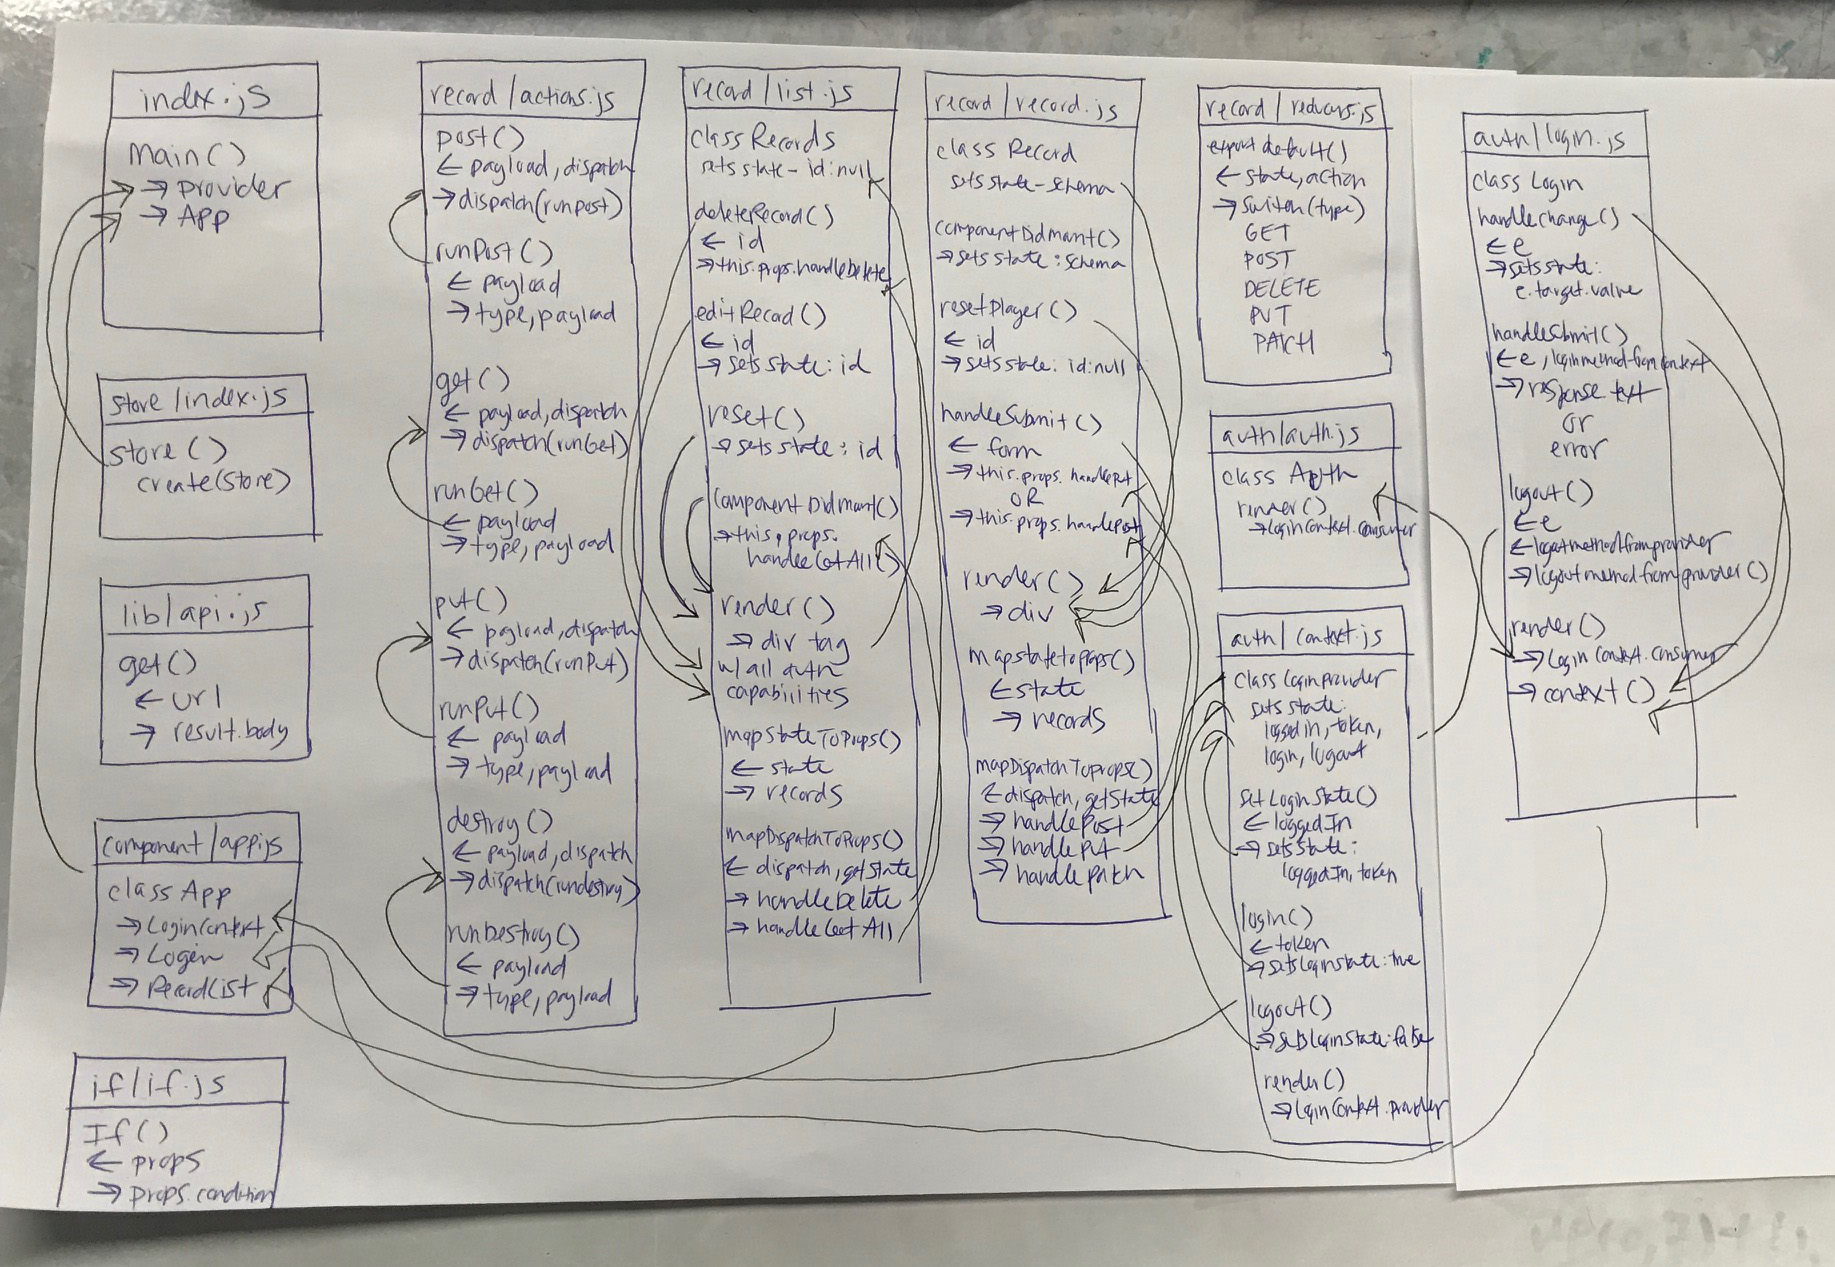 index.js
main()
→ provider
→ App
store/index.js
store()
create(store)
lib/api.js
get()
← url
→ result.body
component/app.js
class App
→ LoginContext
→ Login
→ RecordList
if/if.js
If()
← props
→ props.condition
record/actions.js
post()
← payload, dispatch
→ dispatch(runPost)
runPost()
← payload
→ type, payload
get()
← payload, dispatch
→ dispatch(runGet)
runGet()
← payload
→ type, payload
put()
← payload, dispatch
→ dispatch(runPut)
runPut()
← payload
→ type, payload
destroy()
← payload, dispatch
→ dispatch(rundestroy)
runDestroy()
← payload
→ type, payload
record/list.js
class Records
sets state - id:null
deleteRecord()
← id
→ this.props.handleDelete
editRecord()
← id
→ sets state: id
reset()
→ sets state: id
componentDidmant()
→ this.props.
handleGetAll()
render()
→ div tag
w/ all auth
capabilities
mapStateToProps()
← state
→ records
mapDispatchToProps()
← dispatch, getState
→ handleDelete
→ handleGetAll
record/record.js
class Record
sets state - schema
componentDidmant()
→ sets state: schema
resetPlayer()
← id
→ sets state: id:null
handleSubmit()
← form
→ this.props.handlePut
OR
→ this.props.handlePost
render()
→ div
mapstatetoProps()
← state
→ records
mapDispatchToProps()
← dispatch, getState
→ handlePost
→ handlePut
→ handlePatch
record/reducers.js
export default()
← state, action
→ switch(type)
GET
POST
DELETE
PUT
PATCH
auth/auth.js
class Auth
render()
→ LoginContext.consumer
auth/context.js
class LoginProvider
sets state:
logged in, token,
login, logout
setLoginState()
← loggedIn
→ sets state:
loggedIn, token
login()
← token
→ setsLoginState: true
logout()
→ setsLoginState: false
render()
→ LoginContext.provider
auth/login.js
class Login
handlechange()
← e
→ sets state:
e.target.value
handleSubmit()
← e, loginmethodfromcontext
→ response text
or
error
logout()
← e
← logoutmethodfromprovider
→ logoutmethodfromprovider()
render()
→ Login Context.consumer
→ context()